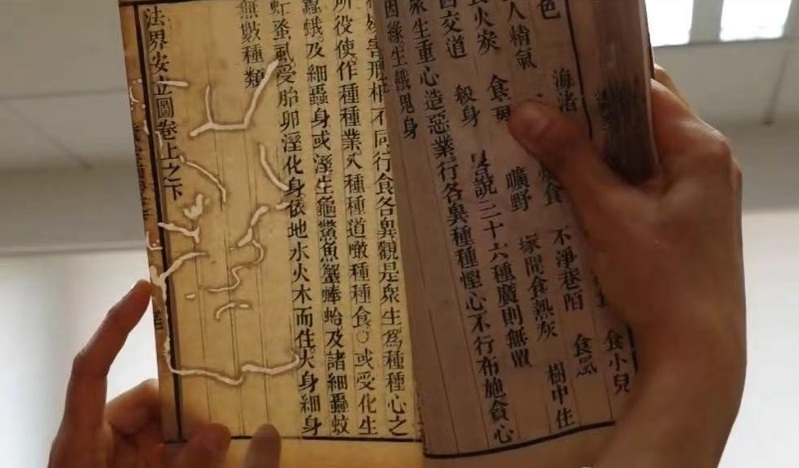 食小兒
色　海渚　食　不淨巷陌　食
人精氣　曠野　塚間食熱灰　樹中住
食火炭　食
四交道　殺身　畧說三十六種廣則無量
眾生重心造惡業行各異種種慳心不行布施貪心
因緣生餓鬼身
害形相不同行食各異觀是眾生為種種心之
所役使作種種業入種種道噉種種食○或受化生
蠶蛾及細蟲身或溼生龜鱉魚蟹蜯蛤及諸細蟲蚊
虻蚤虱受胎卵溼化身依地水火木而住大身細身
無數種類
法界安立圖卷上之下